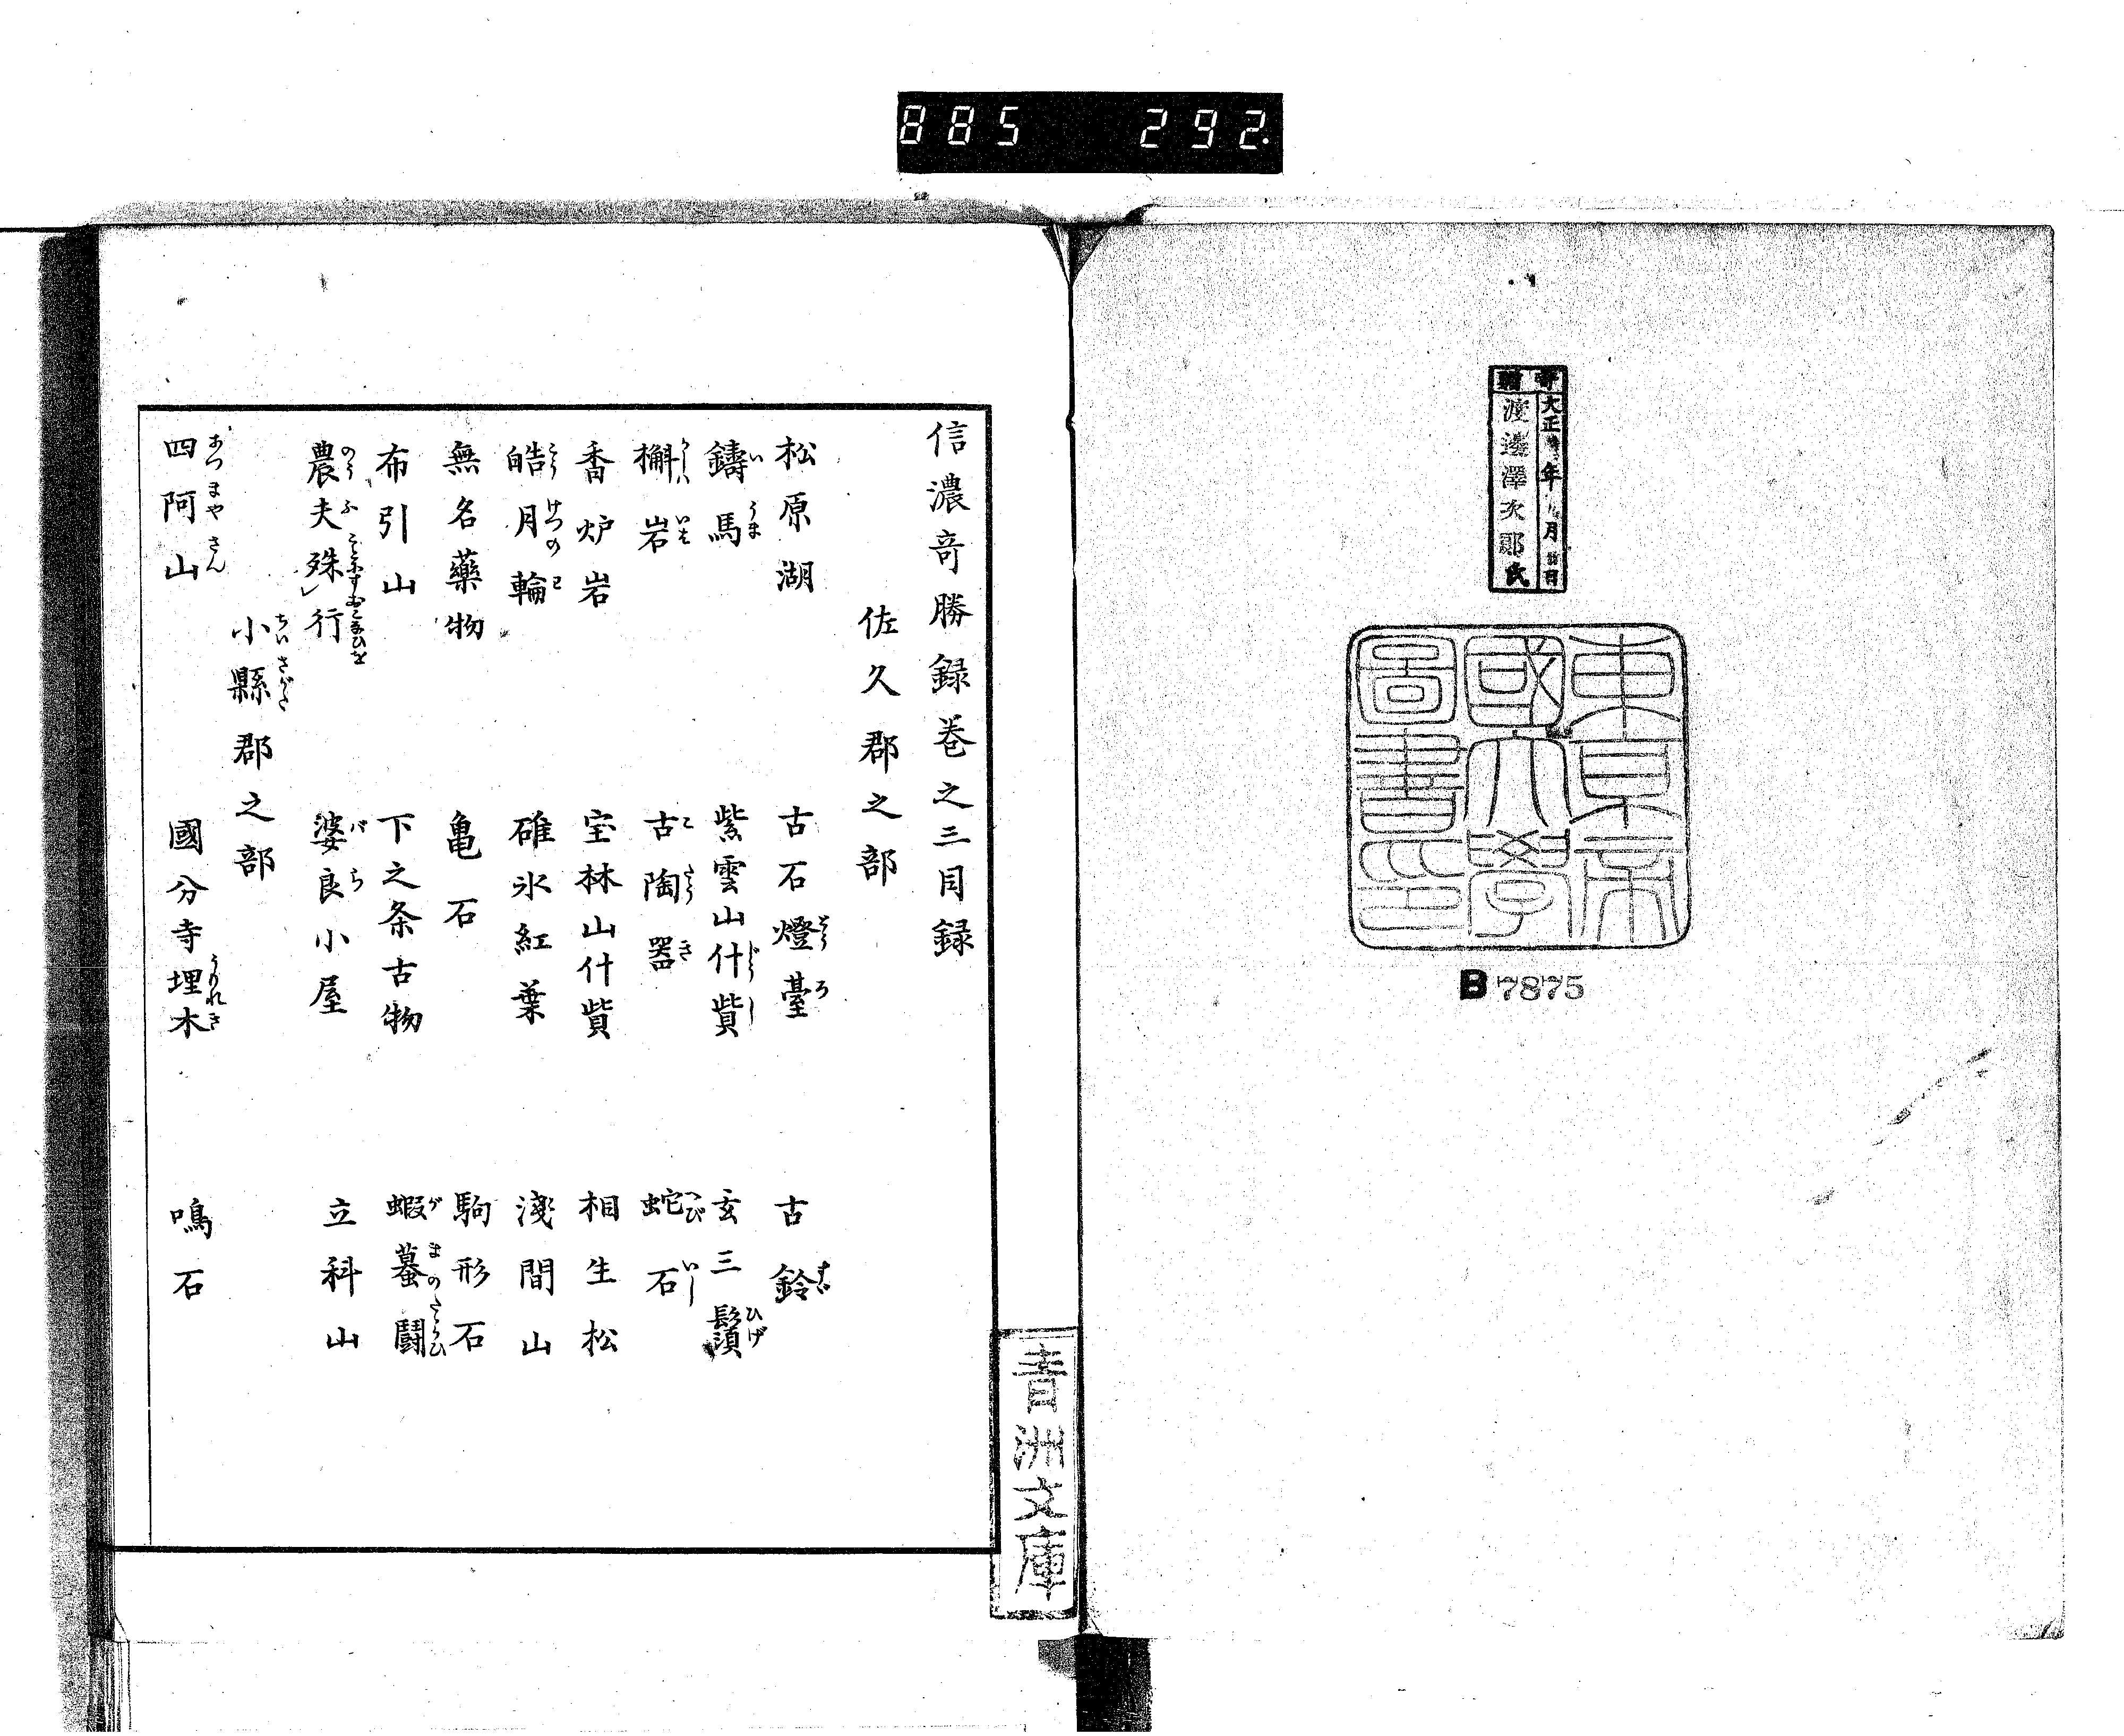 885 292.
寄贈
大正 年 月 日
渡邊澤次郎氏
東京帝
國大學
圖書印
B 7875
信濃奇勝録巻之三目録
佐久郡之部
松原湖 古石燈臺 古鈴
鑄馬 紫雲山什貲 玄三鬚
檞岩 古陶器 蛇石
香炉岩 宝林山什貲 相生松
皓月輪 碓氷紅葉 淺間山
無名藥物 亀石 駒形石
布引山 下之条古物 蝦蟇闘
農夫殊行 婆良小屋 立科山
小縣郡之部
四阿山 國分寺埋木 鳴石
青洲文庫